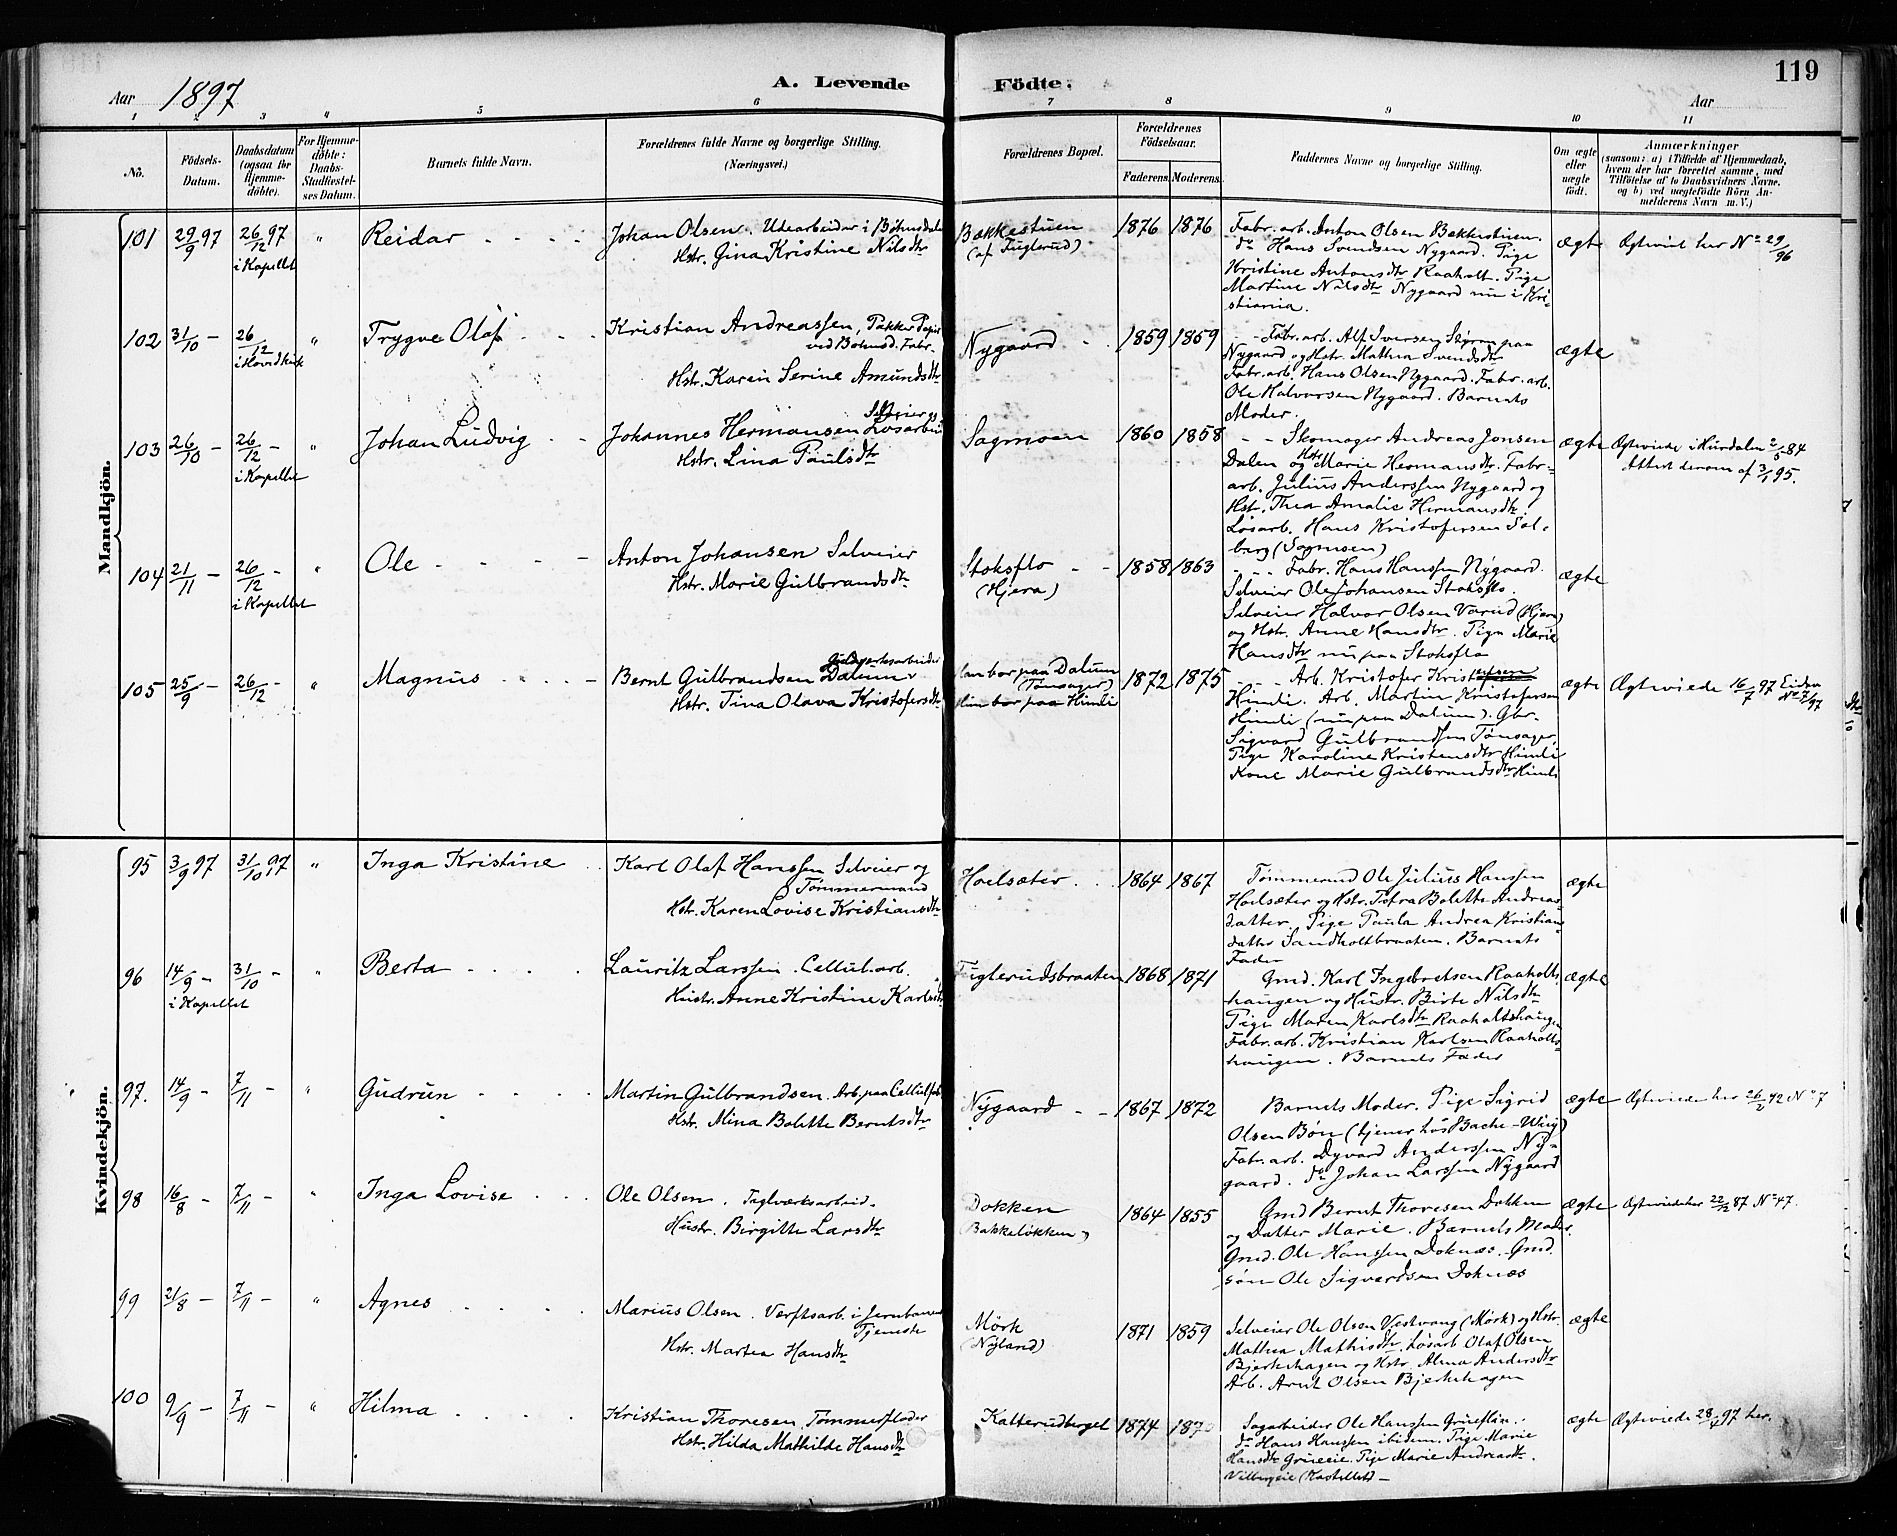 119
Aar 1897
A. Levende Födte.
Aar
1 2 3 4 5 6 7 8 9 10 11
No.
Födsels-Datum.
Daabsdatum (ogsaa for Hjemme-döbte).
For Hjemme-döbte: Daabs-Stadfæstel-ses Datum.
Barnets fulde Navn.
Forældrenes fulde Navne og borgerlige Stilling. (Næringsvei.)
Forældrenes Bopæl.
Forældrenes Födselsaar.
Faderens. Moderens.
Faddernes Navne og borgerlige Stilling.
Om ægte eller uægte födt.
Anmærkninger
(saasom: a) i Tilfælde af Hjemmedaab, hvem der har forrettet samme, med Tilföielse af to Daabsvidners Navne, og b) ved uægtefödte Börn An-melderens Navn m. V.)
Mandkjön.
101 29/9 97 26/12 97 i Kapellet " Reidar
Johan Olsen. Utearbeider i Böhnsdalen
Hstr. Gina Kristine Nilsdtr
Bækkestuen (af Fuglerud)
1876 1876
Fabr. arb. Anton Olsen Bækkestuen.
do Hans Svendsen Nygaard. Pige
Kristine Antonsdtr Raaholt. Pige
Martine Nilsdtr Nygaard nu i Kri-
stiania.
ægte
Ægteviet her No 29/96
102 31/10 - 26/12 i Hovedkirk " Trygve Olaf
Kristian Andreassen, Pakker Papir
ved Bohnsd. Fabr.
Hstr. Karen Serine Amundsdtr
Nygaard
1859 1859
Fabr. arb. Alf Iversen paa
Nygaard og Hstr. Mathea Svendsdtr
Fabr. arb. Hans Olsen Nygaard. Fabr. arb.
Ole Halvorsen Nygaard. Barnets
Moder.
ægte
103 26/10 - 26/12 - i Kapellet " Johan Ludvig
Selveier og
Johannes Hermansen Løsarbeid
Hstr. Lina Paulsdtr
Sagmoen
1860 1858
Skomager Andreas Jonsen
Dalen og Hstr Marie Hermansdtr. Fabr-
arb. Julius Anderssen Nygaard og
Hstr. Thea Amalie Hermansdtr.
Løsarb. Hans Kristofersen Sol-
berg (Sagmoen)
ægte
Ægteviede i Hurdalen 2/5 84
Attest derom af 3/1 95.
104 21/11 - 26/12 - i Kapellet " Ole
Anton Johansen Selveier
Hstr. Marie Gulbrandsdtr
Stoksflo (Hjera)
1858 1863
Fabr. Hans Hanssen Nygaard.
Selveier Ole Johansen Stoksflo.
Selveier Halvor Olsen Varud (Hjera)
og Hstr. Anne Hansdtr. Pige Marie
Hansdtr nu paa Stoksflo
ægte
105 25/9 - 26/12 - " Magnus
Bernt Gulbrandsen Dalum
Hstr. Tina Olava Kristofersdtr
han bor paa Dalum
(Tønsager)
Hun bor paa Himli
1872 1875
Arb. Kristofer
Himli. Arb. Martin Kristofersen
Himli (nu paa Dalum). Gbr.
Sigvard Gulbrandsen Tønsager.
Pige Karoline Kristensdtr Himli
Kone Marie Gulbrandsdtr Himli
ægte
Ægteviede 16/7 97 Eidsv. No 7/97
Kvindekjön.
95 3/9 97 31/10 97 " Inga Kristine
Karl Olaf Hanssen Selveier og
Tømmermand
Hstr. Karen Lovise Kristiansdtr
Hoelsæter
1864 1867
Tømmermd Ole Julius Hanssen
Hoelsæter og Hstr. Bolette Andreas-
datter. Pige Paula Andrea Kristians-
datter Sandholtbraaten. Barnets
Fader
ægte
96 14/9 - i Kapellet 31/10 - " Berta
Lauritz Larssen. Cellul. arb.
Hustr. Anne Kristine Karlsdtr
Fuglerudsbraaten
1868 1871
Gmd. Karl Ingebretsen Raaholts-
haugen og Hustr. Birte Nilsdtr
Pige Maren Karlsdtr Raaholtshaugen
Fabr. arb. Kristian Karlsen Raaholts-
haugen. Barnets Fader
ægte
97. 14/9 - 7/11 - " Gudrun
Martin Gulbrandsen. Arb. paa Cellulfab
Hstr. Mina Bolette Berntsdtr
Nygaard
1867 1872
Barnets Moder. Pige Sigrid
Olsen Bøn (tjener hos Bache-Wiig)
Fabr. arb. Dyvard Anderssen Ny-
gaard. do Johan Larssen Nygaard
ægte
Ægteviede her 26/2 92 No 7
98 16/8 - 7/11 - " Inga Lovise
Ole Olsen. Teglværksarbeid.
Hustr. Birgitte Larsdtr
Dokken
Bakkeløkken)
1864 1855
Gmd Bernt Thoresen Dokken
og Datter Marie. Barnets Moder.
Gmd. Ole Hanssen Doknæs. Gmd.
søn Ole Sigvardsen Doknæs
ægte
Ægteviede her 22/12 87 No 47.
99 21/8 - 7/11 - " Agnes
Marius Olsen. Værftsarb. i Jernbanens
Tjeneste
Hstr. Martea Hansdtr
Mørk
(Nyland)
1871 1859
Selveier Ole Olsen Vestvang (Mørk) og Hstr.
Mathea Mathisdtr. Løsarb Olaf Olsen
Bjerkehagen og Hstr. Alma Andersdtr
Arb. Arnt Olsen Bjerkehagen
ægte
100 9/9 - 7/11 - " Hilma
Kristian Thoresen Tømmerfløder
Hstr. Hilda Mathilde Hansdtr
Katterudberget
1874
Sagarbeider Ole Hanssen
do Hans Hanssen ibidem. Pige Marie
Hansdtr Grueeie. Pige Marie Andreasdtr.
Vilbergeie (Kastellet) -
ægte
Ægteviede 28/4 97 her.